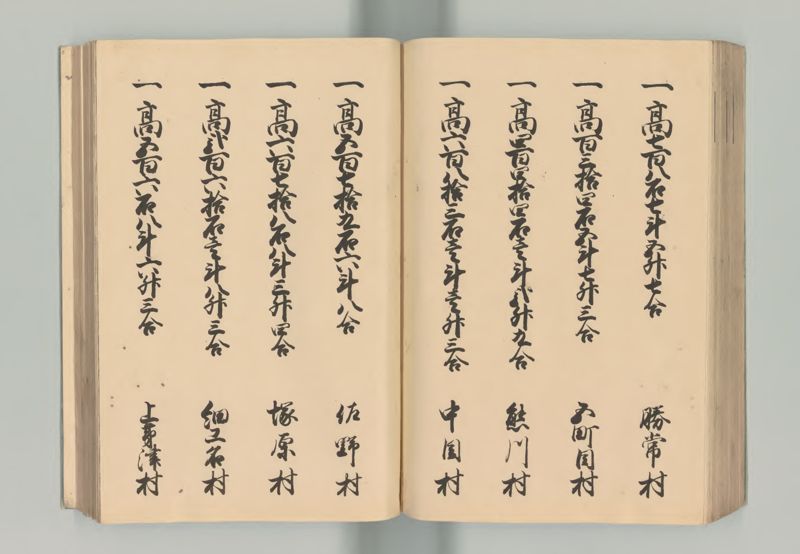 一 高七百八石七斗五升七合 勝常村
一 高百三拾四石五斗七升三合 五町目村
一 高四百四拾四石壱斗弐升九合 熊川村
一 高六百八拾三石壱斗壱升三合 中目村
一 高五百七拾九石六斗八合 佐野村
一 高六百七拾八石八斗三升四合 塚原村
一 高弐百六拾石壱斗八升三合 細工名村
一 高五百六石八斗六升三合 上茅津村